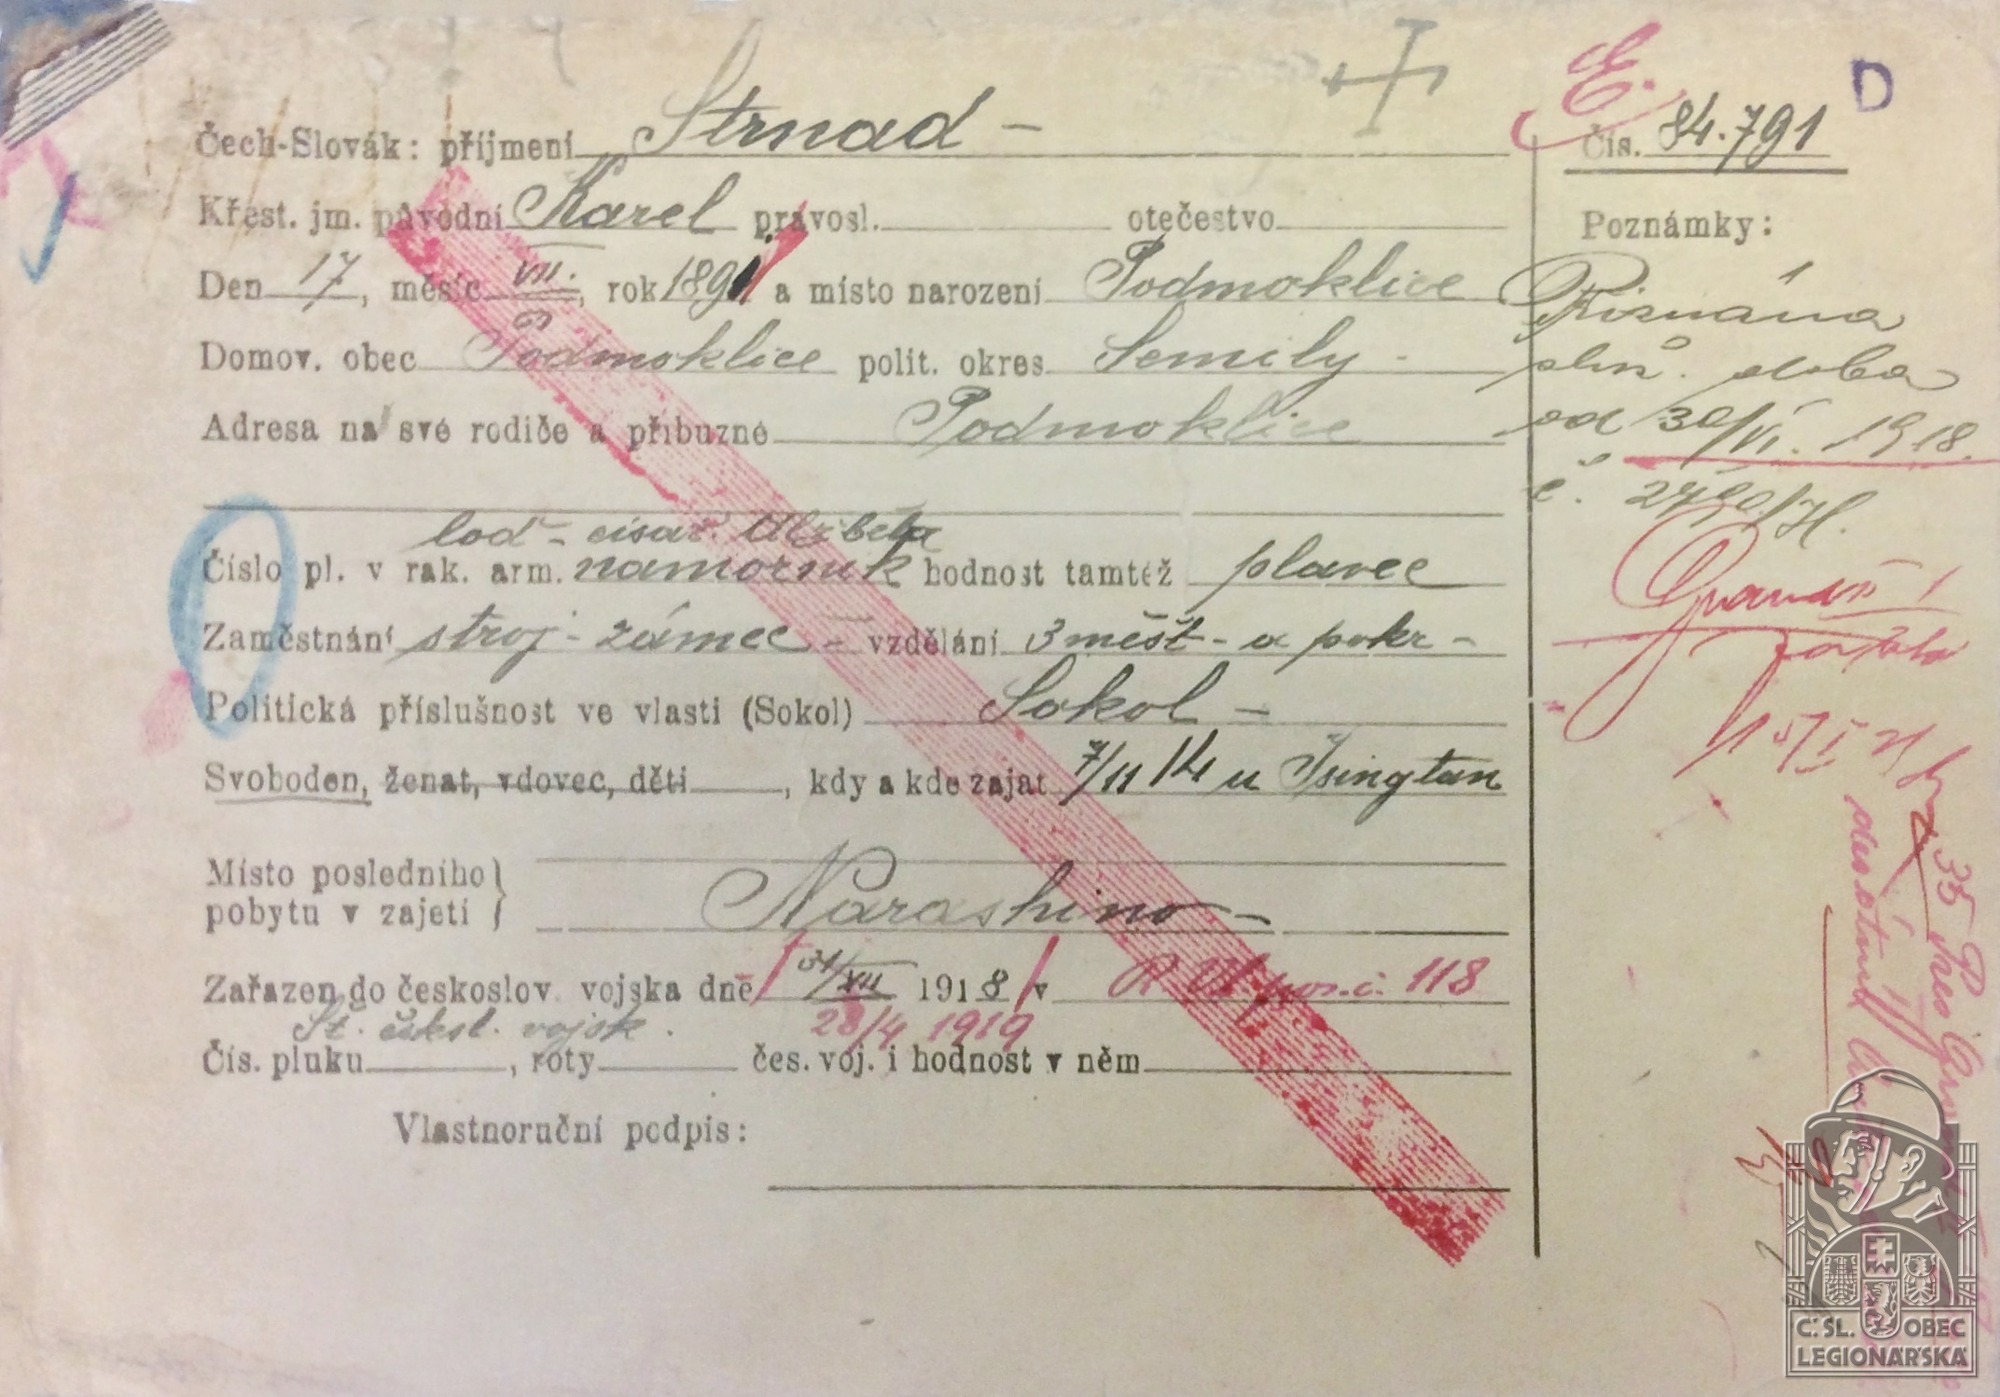 E.
D
Čech-Slovák: příjmení Strnad –
Čís. 84.791
Křest. jm. původní Karel pravosl. otečestvo
Poznámky:
Den 17, měsíc VII., rok 1891 a místo narození Podmoklice
Domov. obec Podmoklice polit. okres Semily -
Adresa na své rodiče a příbuzné Podmoklice
Přiznána
doba
od 30/VI. 1918.
č. 2790/H.
loď – císař. Alžběta
Číslo pl. v rak. arm. námořník hodnost tamtéž plavec
Zaměstnání stroj - zámec – vzdělání 3 měšt - a pokr -
Politická příslušnost ve vlasti (Sokol) Sokol –
Svoboden, ženat, vdovec, děti , kdy a kde zajat 7/11 14 u Tsingtau
Místo posledního
pobytu v zajetí } Narashino –
Zařazen do českoslov. vojska dně 31/XII 1918 v R. Vl. č. 118
St. čsl. vojsk. 28/4 1919
Čís. pluku , roty čes. voj. i hodnost v něm
Vlastnoruční podpis:
15/I 21
35
Č. SL. OBEC
LEGIONÁŘSKÁ